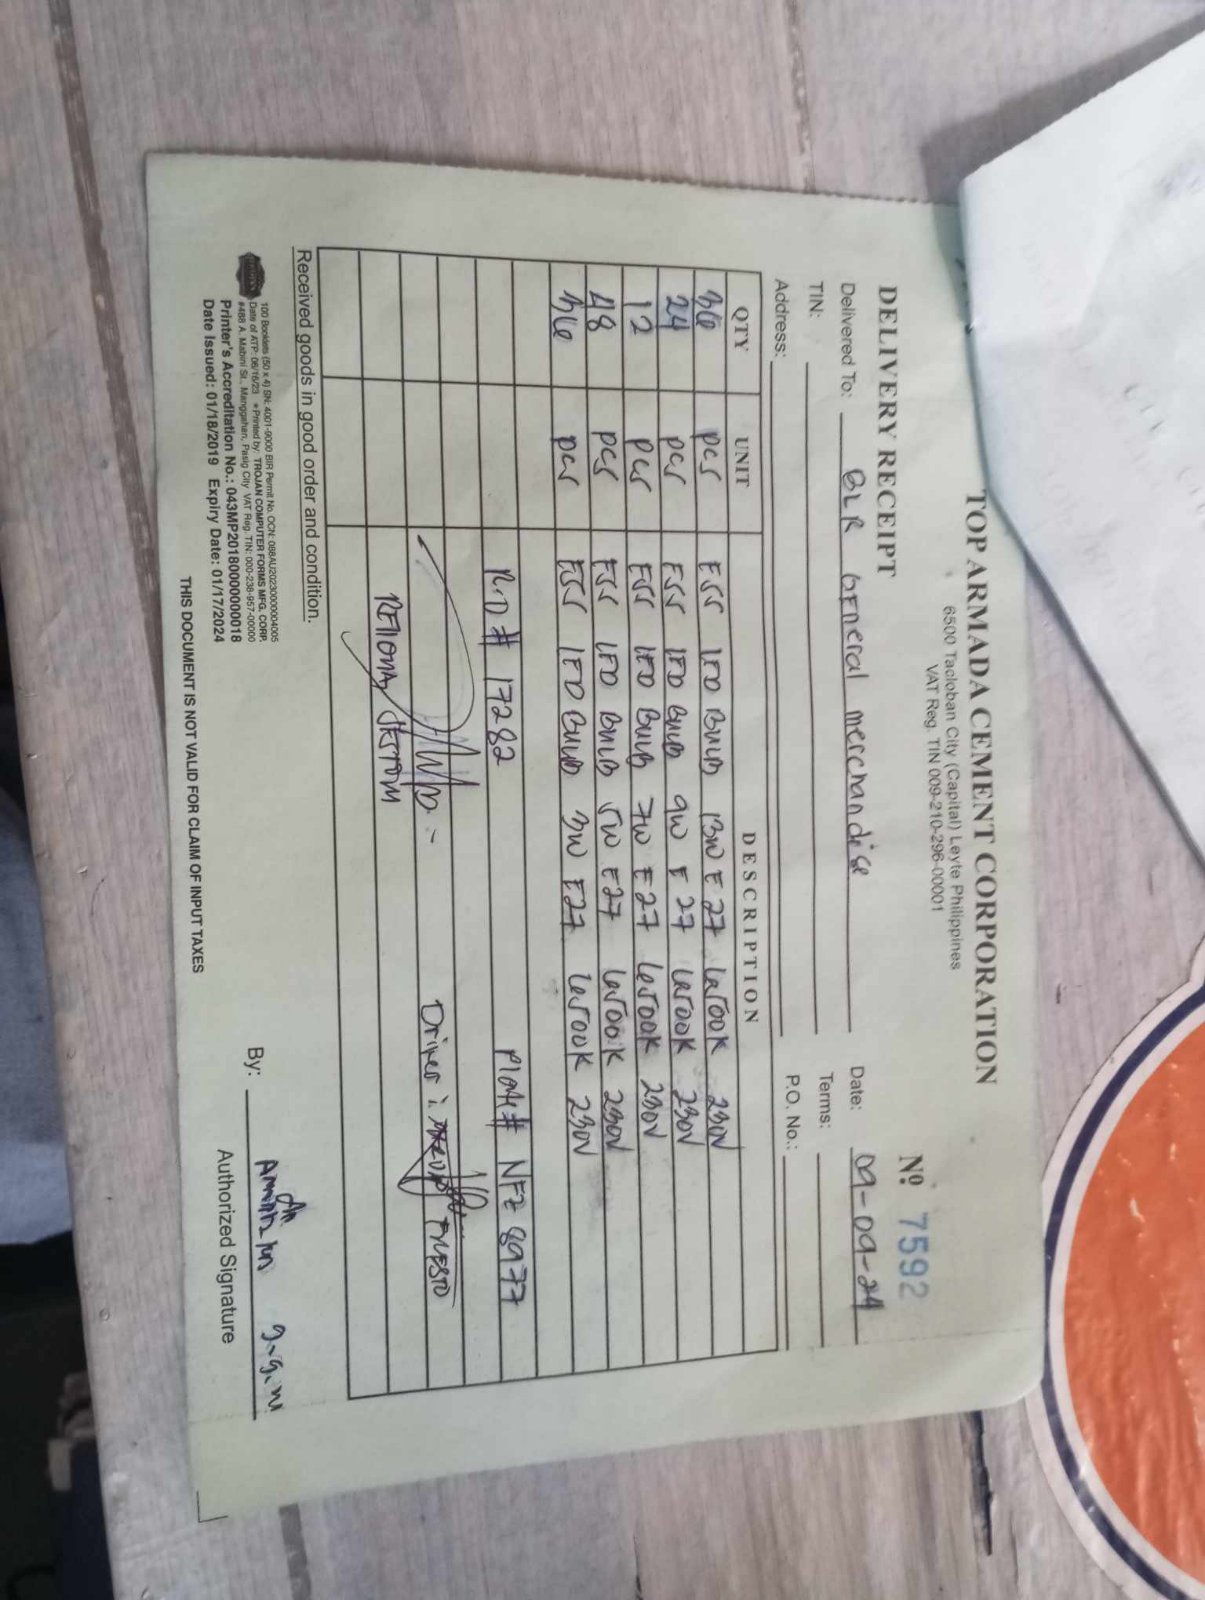 TOP ARMADA CEMENT CORPORATION
6500 Tacloban City (Capital) Leyte Philippines
VAT Reg. TIN 009-210-296-00001
DELIVERY RECEIPT
Nº 7592
Delivered To: BLR General merchandise Date: 09-09-24
TIN: Terms:
Address: P.O. No.:
QTY UNIT DESCRIPTION
36 pcs ESS LED BULB 13W E27 6500K 230V
24 pcs ESS LED BULB 9W E27 6500K 230V
12 pcs ESS LED BULB 7W E27 6500K 230V
48 pcs ESS LED BULB 5W E27 6500K 230V
36 pcs ESS LED BULB 3W E27 6500K 230V
R.D# 17282 Plate# NFZ 8977
Driver:
Received goods in good order and condition.
100 Booklets (50 x 4) SN: 4001-9000 BIR Permit No. OCN: 088AU20230000004005
Date of ATP: 06/16/23 • Printed by: TROJAN COMPUTER FORMS MFG. CORP.
#488 A. Mabini St., Manggahan, Pasig City VAT Reg. TIN: 000-238-957-00000
Printer's Accreditation No.: 043MP20180000000018
Date Issued: 01/18/2019 Expiry Date: 01/17/2024
By:
Authorized Signature
THIS DOCUMENT IS NOT VALID FOR CLAIM OF INPUT TAXES